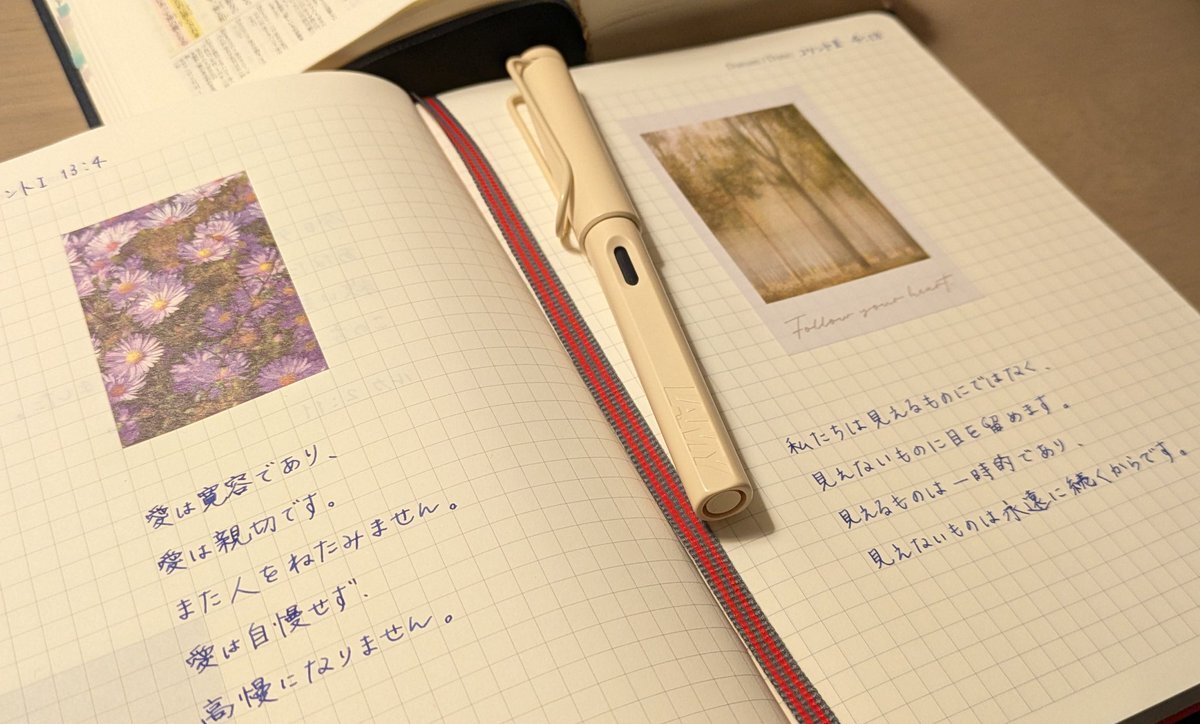 ントI 13:4
愛は寛容であり、
愛は親切です。
また人をねたみません。
愛は自慢せず、
高慢になりません。
LAMY
コリントⅡ 4:18
Follow your heart
私たちは見えるものにではなく、
見えないものに目を留めます。
見えるものは一時的であり、
見えないものは永遠に続くからです。